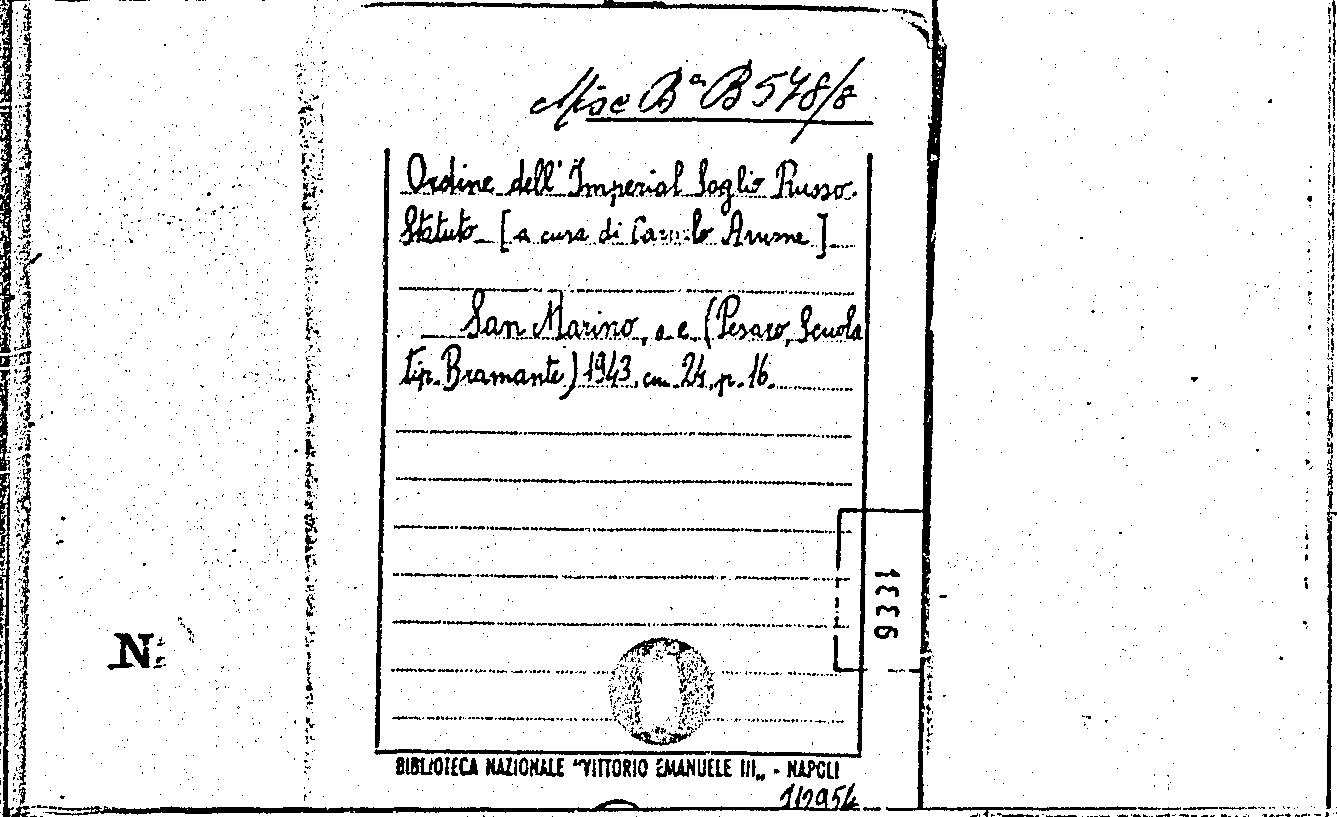 Misc Bª B 578/8
Ordine dell' Imperial Soglio Russo.
Statuto [a cura di Camilo Anune]
San Marino, s. e. (Pesaro, Scuola
tip. Bramante) 1943, cm. 24, p. 16.
1336
N:
BIBLIOTECA NAZIONALE "VITTORIO EMANUELE III„ - NAPOLI